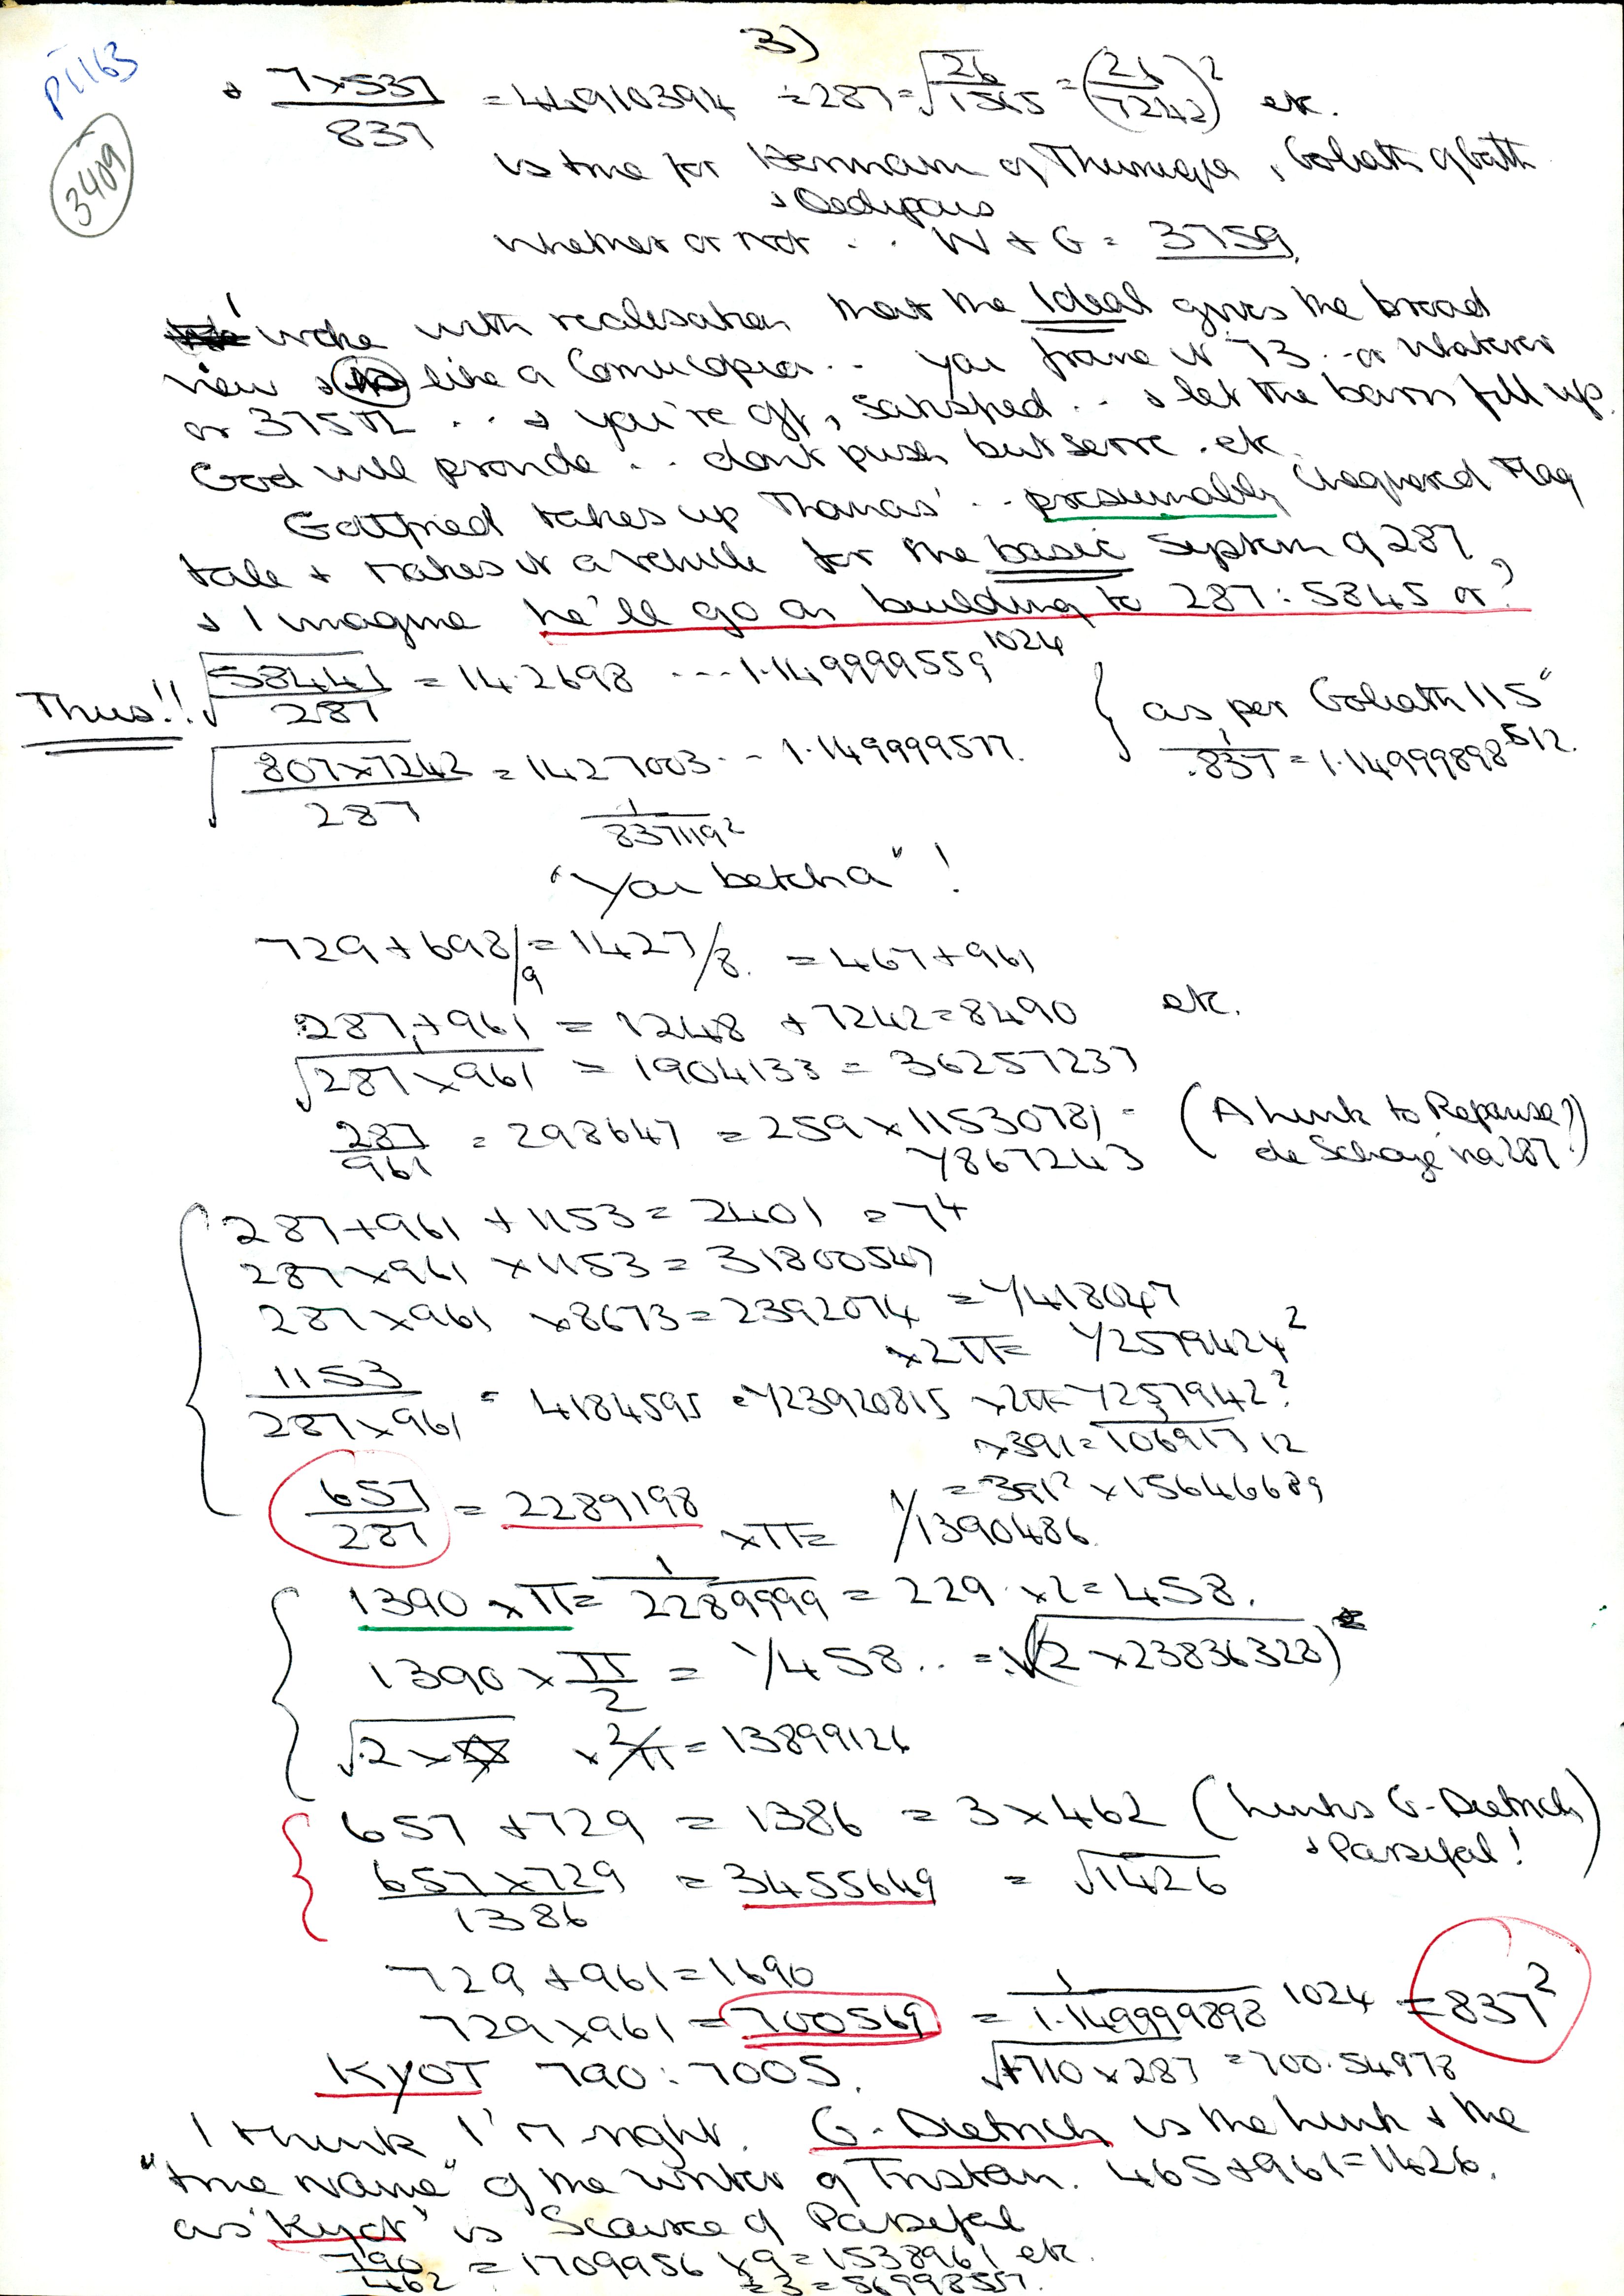 3)
PT163
3409
+ 7x537/837 = 44910394 ÷ 287 = √26/1565 = (26/7242)² etc.
is true for Hermann of Thuringia, Goliath of Gath
+ Oedipus
whether or not .. W + G = 3759.
I woke with realisation that the Ideal gives the broad
view & is like a Cornucopia .. you frame it 73 .. or whatever
or 375π .. & you're off, satisfied .. & let the barn fill up.
God will provide .. don't push but serve. etc.
Gottfried takes up Thomas' .. presumably Chequered Flag
tale + makes it a vehicle for the basic system of 287,
& I imagine he'll go on building to 287:5845 or?
Thus!! √58441/287 = 14.2698 --- 1.149999559^1024
√807x7242/287 = 1427003 -- 1.149999577.
} as per Goliath 115"
1/.837 = 1.14999898^512.
1/837119²
"You betcha"!
729 + 698/9 = 1427/8. = 467 + 961
287 + 961 = 1248 + 7242 = 8490 etc.
√287 x 961 = 1904133 = 36257237
287/961 = 298647 = 259 x 1153078; -
1/867243
(A link to Repanse?
de Schoye via 287?)
287 + 961 + 1153 = 2401 = 7⁴
287 x 961 x 1153 = 31800547
287 x 961 x 8673 = 2392074 = 1/418047
x 2π = 1/2579424²
1153/287 x 961 = 4184595 = 1/23920815 x 2π = 1/257942²
x 391 = 106917 12
= 391² x 15646689
657/287 = 2289198 x π = 1/1390486.
1390 x π = 1/2289999 = 229 x 2 = 458.
1390 x π/2 = 1/458 .. = √(2 x 23836328)
√.2 x x 2/π = 13899126
657 + 729 = 1386 = 3 x 462 (Links G-Dietrich
& Parzifal!)
657 x 729/1386 = 3455649 = √1426
729 + 961 = 1690
729 x 961 = 700569 = 1/1.149999898^1024 = 837²
KYOT 790:7005. √1710 x 287 = 700.54978
I think I'm right. G-Dietrich is the link & the
"true name" of the writer of Tristan. 465 + 961 = 1426.
as 'Kyot' is Source of Parzifal
790/462 = 1709956 x 9 = 1538961 etc.
÷ 3 = 56998557.